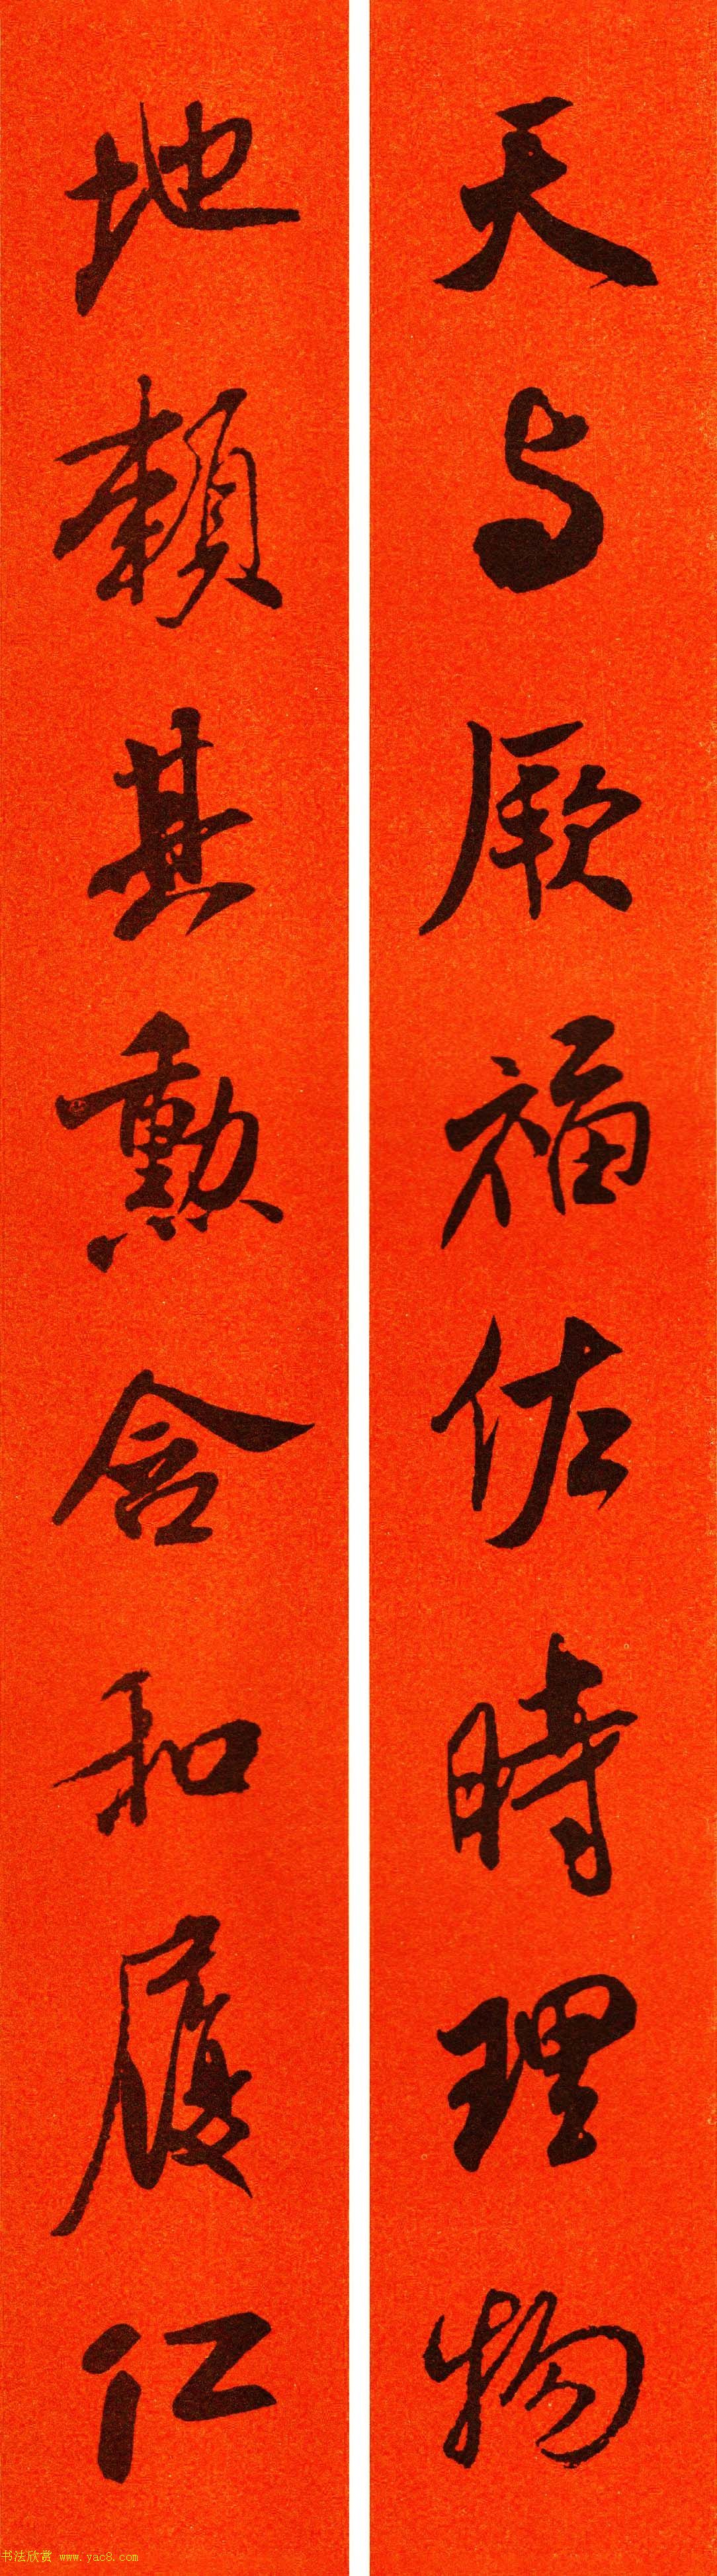 天与厥福佐時理物
地賴其勳含和履仁
书法欣赏 www.yac8.com